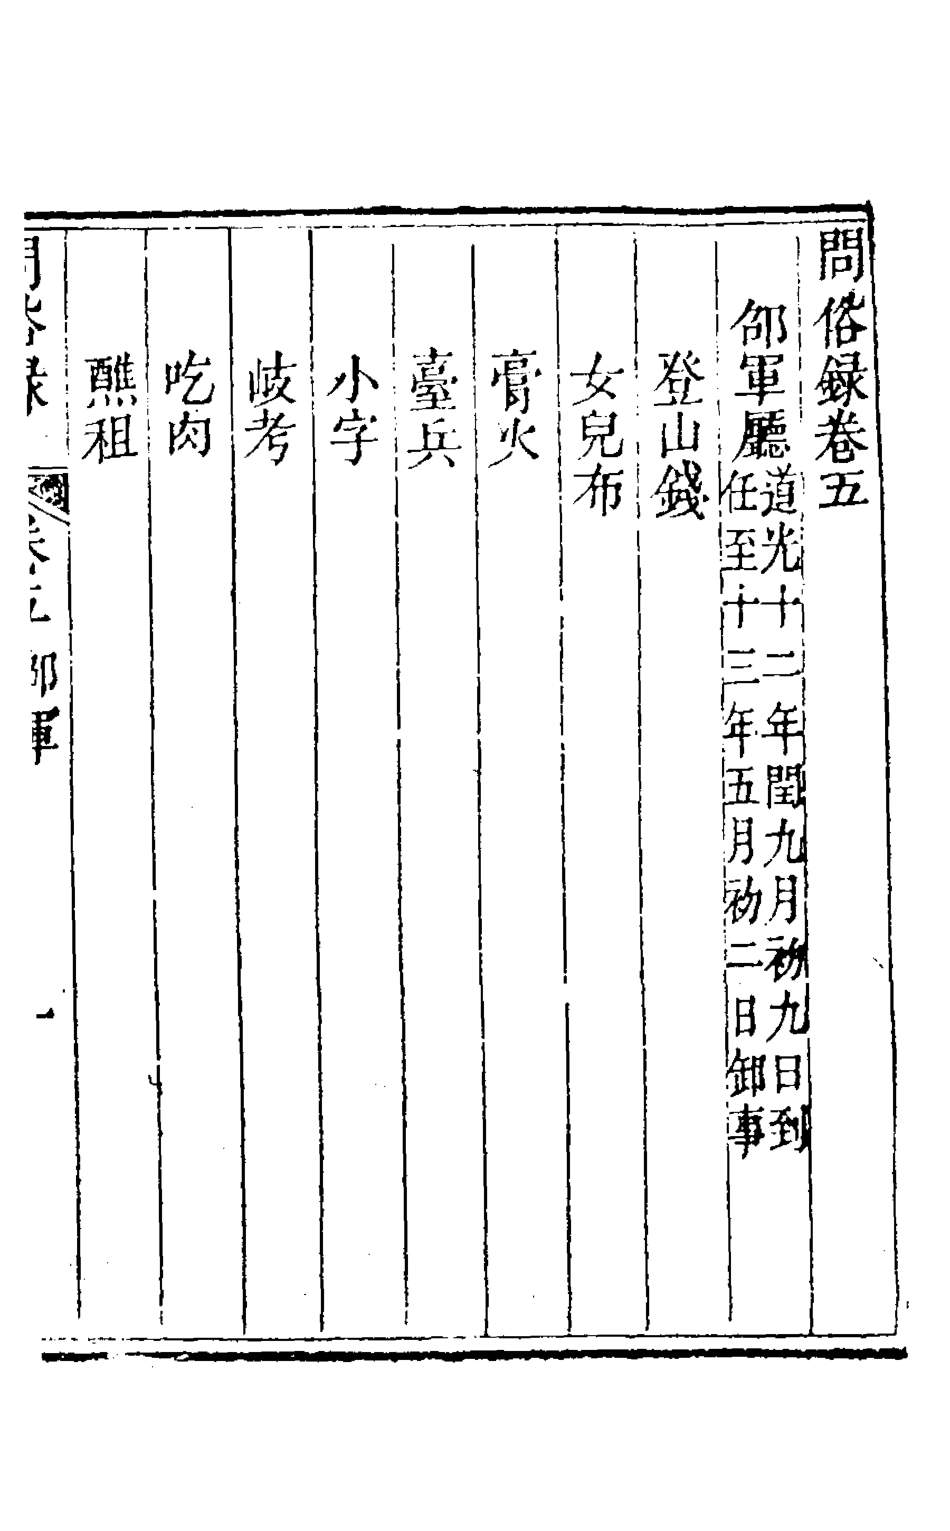 問俗録卷五
邵軍廳道光十二年閏九月初九日到
任至十三年五月初二日卸事
登山錢
女兒布
膏火
臺兵
小字
歧考
吃肉
醮租
問俗録 卷五 邵軍 一